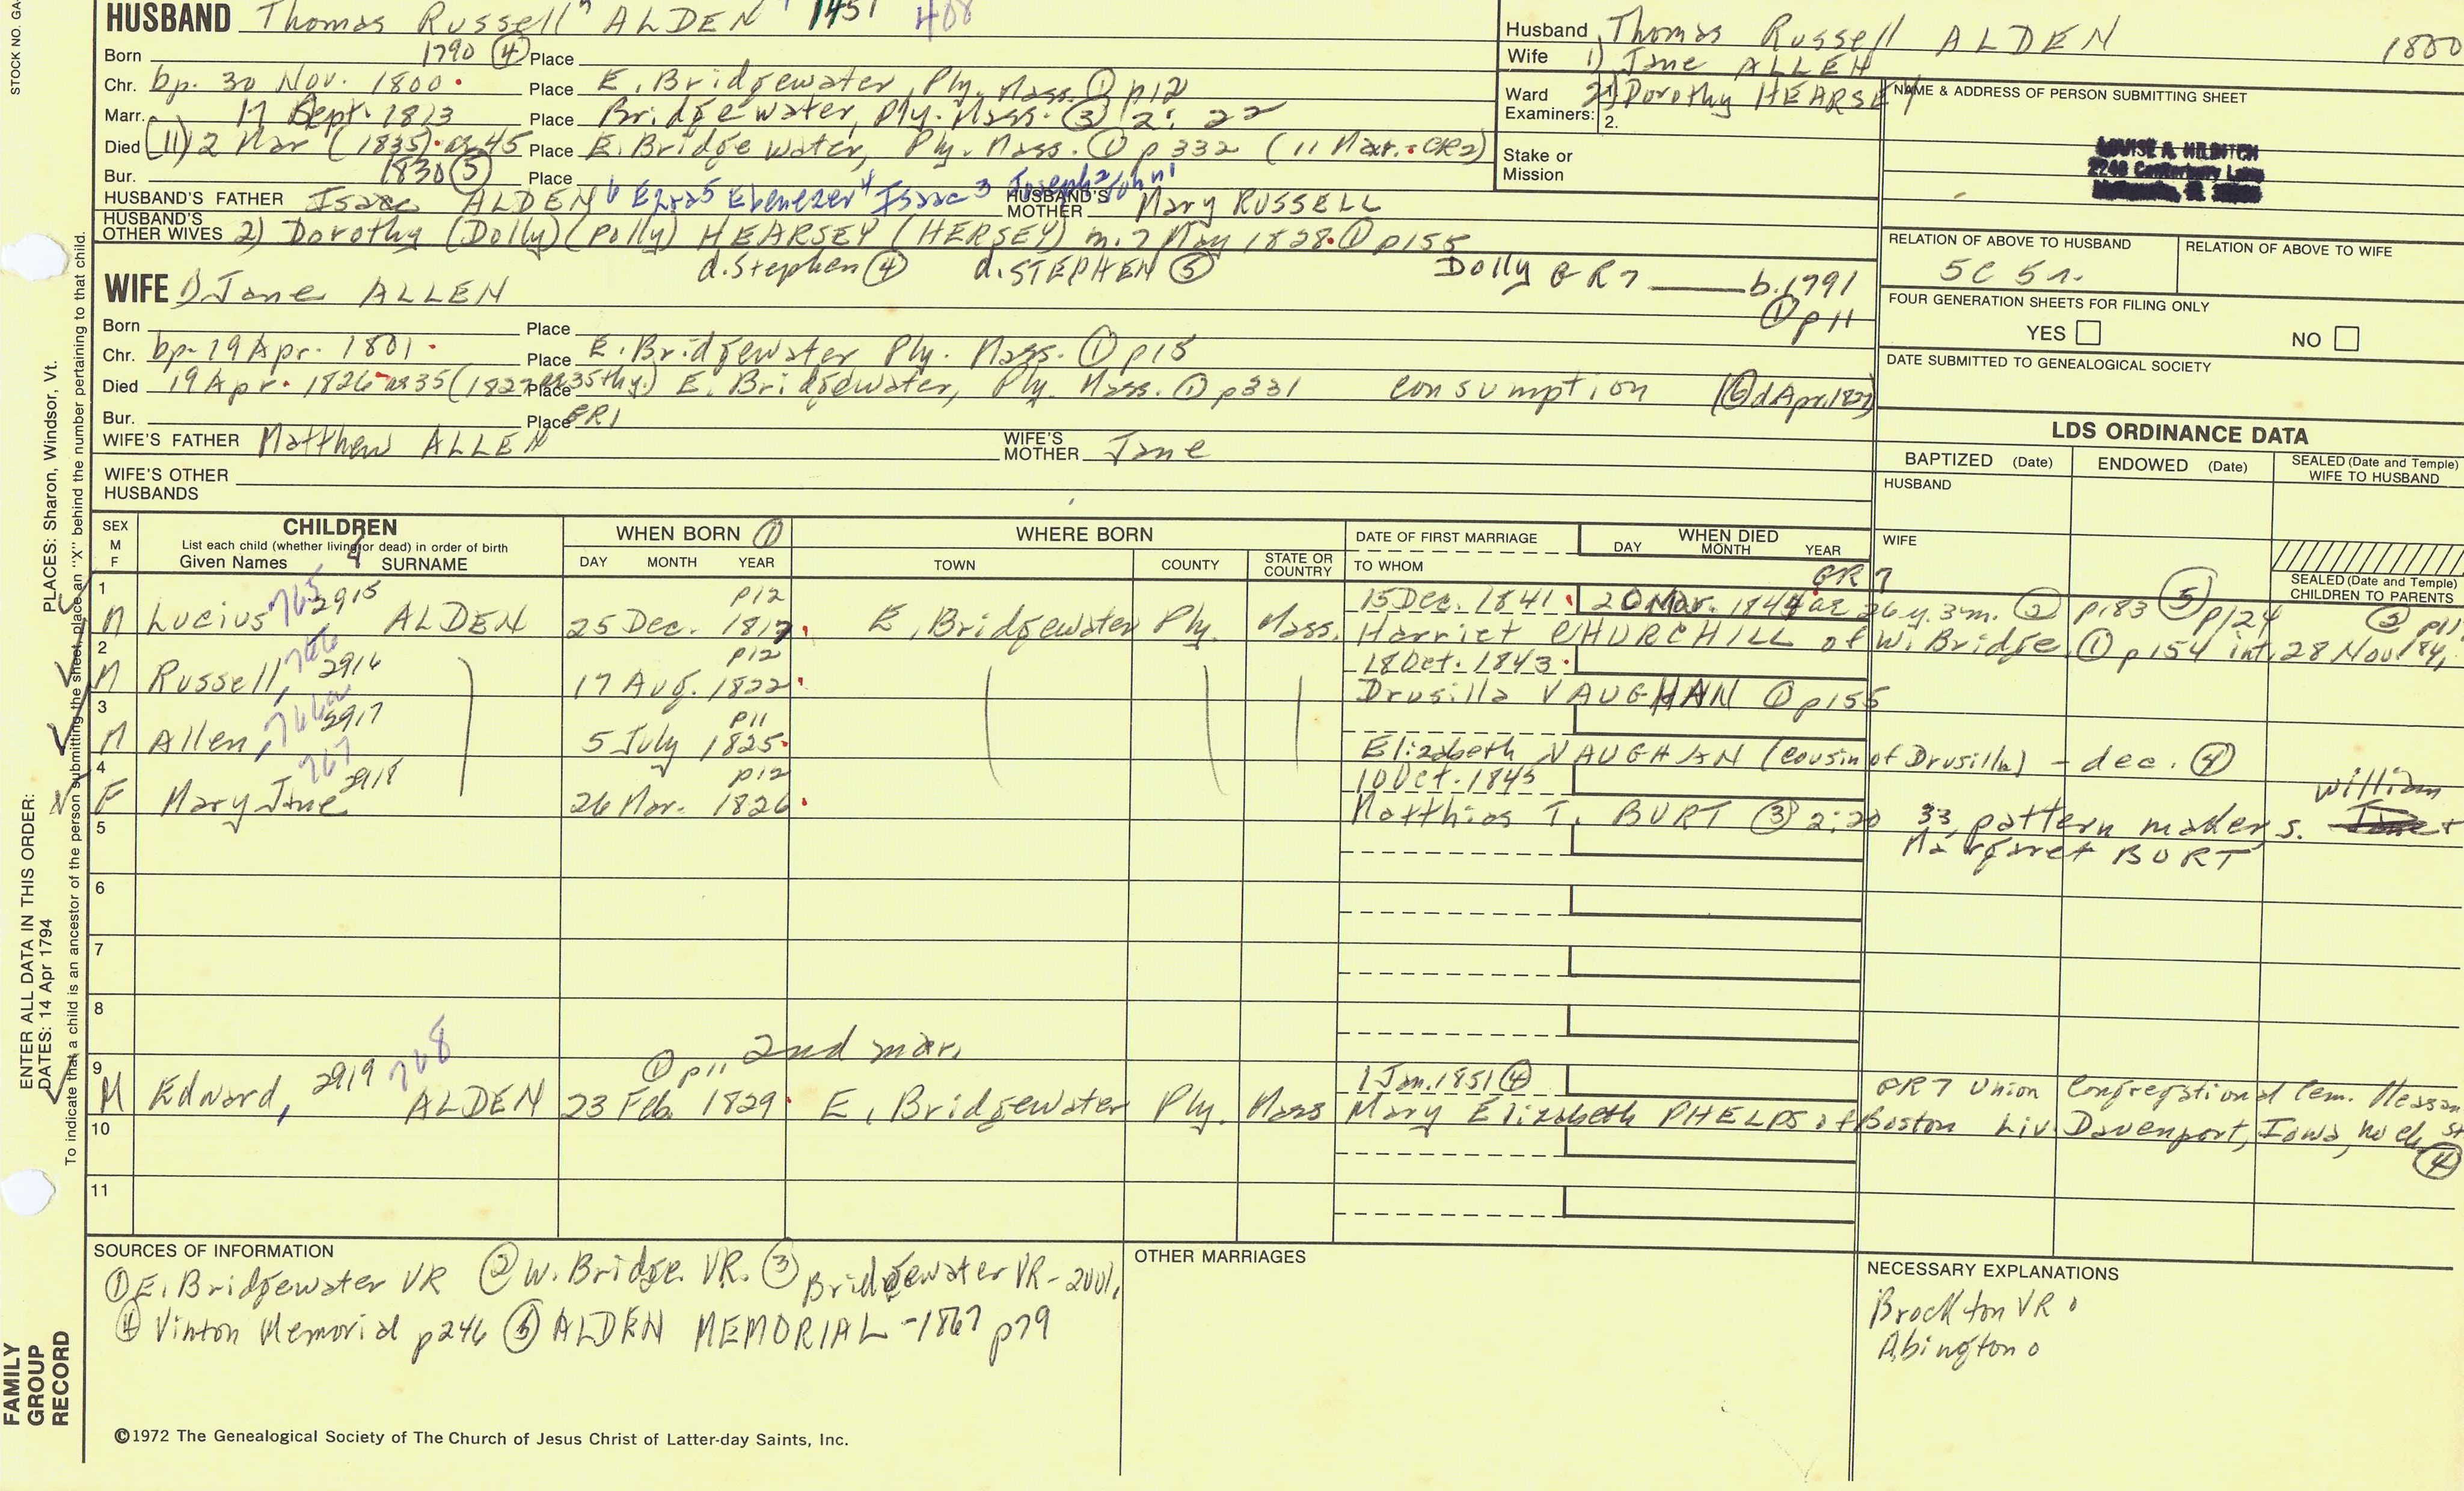 STOCK NO. GA-
HUSBAND Thomas Russell 7 ALDEN 1451 408
Born 1790 (4) Place
Chr. bp. 30 Nov. 1800. Place E. Bridgewater, Ply. Mass. (1) p12
Marr. 17 Sept. 1813 Place Bridgewater, Ply. Mass. (3) 2: 22
Died (11) 2 Mar (1835). ae 45 Place E. Bridgewater, Ply. Mass. (1) p 332 (11 Mar. - CR2)
Bur. 1830 (5) Place
HUSBAND'S FATHER Isaac ALDEN 6 Ezra 5 Ebenezer 4 Isaac 3 Joseph 2 John 1 HUSBAND'S MOTHER Mary RUSSELL
HUSBAND'S OTHER WIVES 2) Dorothy (Dolly) (Polly) HEARSEY (HERSEY) m. 7 May 1828. (1) p155
d. Stephen (4) d. STEPHEN (5) Dolly GR7 b. 1791
(1) p11
WIFE 1) Jane ALLEN
Born Place
Chr. bp. 19 Apr. 1801. Place E. Bridgewater Ply. Mass. (1) p15
Died 19 Apr. 1826 ae 35 (1827 ae 35thy.) Place E. Bridgewater, Ply. Mass. (1) p331 consumption (6) d Apr. 1827
Bur. Place GR1
WIFE'S FATHER Matthew ALLEN WIFE'S MOTHER Jane
WIFE'S OTHER HUSBANDS
Husband Thomas Russell ALDEN 1800
Wife 1) Jane ALLEN
Ward 1. 2) Dorothy HEARSEY
Examiners: 2.
Stake or Mission
NAME & ADDRESS OF PERSON SUBMITTING SHEET
LOUISE A. HILDITCH
RELATION OF ABOVE TO HUSBAND RELATION OF ABOVE TO WIFE
5C 5r.
FOUR GENERATION SHEETS FOR FILING ONLY
YES NO
DATE SUBMITTED TO GENEALOGICAL SOCIETY
LDS ORDINANCE DATA
BAPTIZED (Date) ENDOWED (Date) SEALED (Date and Temple) WIFE TO HUSBAND
HUSBAND
WIFE
SEALED (Date and Temple) CHILDREN TO PARENTS
SEX M F CHILDREN WHEN BORN (1) WHERE BORN DATE OF FIRST MARRIAGE WHEN DIED
List each child (whether living or dead) in order of birth
Given Names SURNAME DAY MONTH YEAR TOWN COUNTY STATE OR COUNTRY TO WHOM DAY MONTH YEAR
1 p12 15 Dec. 1841. 20 Mar. 1844 ae 26 y. 3 m. (2) p183 (5) p124 (2) p11 GR7
M Lucius 765 2915 ALDEN 25 Dec. 1817. E. Bridgewater Ply. Mass. Harriet CHURCHILL of W. Bridge. (1) p154 int. 28 Nov 184
2 p12 18 Oct. 1843.
M Russell, 766 2916 17 Aug. 1822. Drusilla VAUGHAN (1) p155
3 p11
M Allen, 766a 2917 5 July 1825. Elizabeth VAUGHAN (cousin of Drusilla) - dec. (4)
4 p12 10 Oct. 1845 William
F Mary Jane 767 2918 26 Mar. 1826. Matthias T. BURT (3) 2:20 33, pattern maker s.
5 Margaret BURT
6
7
8
2nd mar.
9 (1) p11 1 Jan. 1851 (4) GR7 Union Congregational Cem. Pleasan
M Edward, 2919 768 ALDEN 23 Feb. 1829. E. Bridgewater Ply. Mass Mary Elizabeth PHELPS of Boston Liv. Davenport, Iowa, no ch. St
10 (4)
11
SOURCES OF INFORMATION
(1) E. Bridgewater VR (2) W. Bridge. VR. (3) Bridgewater VR - 2vol.
(4) Vinton Memorial p246 (5) ALDEN MEMORIAL - 1867 p79
OTHER MARRIAGES
NECESSARY EXPLANATIONS
Brockton VR 0
Abington 0
©1972 The Genealogical Society of The Church of Jesus Christ of Latter-day Saints, Inc.
FAMILY GROUP RECORD
ENTER ALL DATA IN THIS ORDER:
DATES: 14 Apr 1794
PLACES: Sharon, Windsor, Vt.
To indicate that a child is an ancestor of the person submitting the sheet, place an "X" behind the number pertaining to that child.